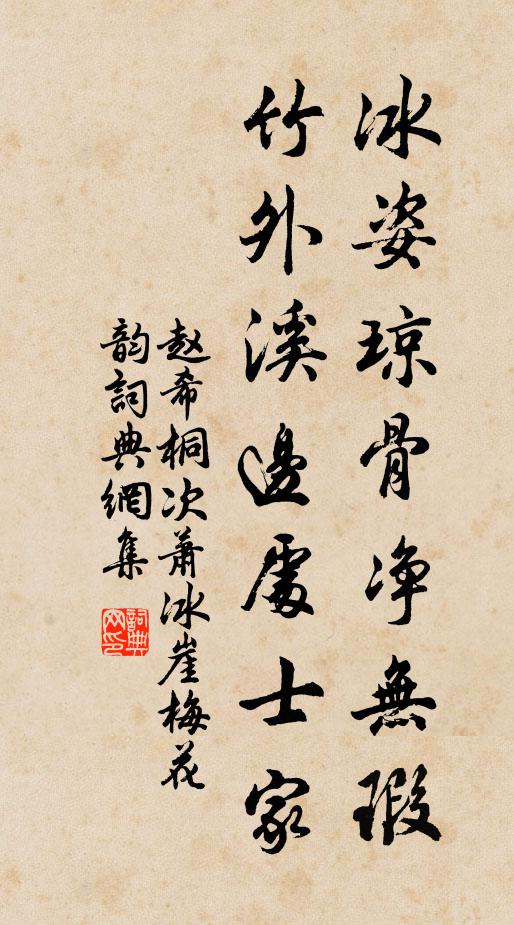 冰姿琼骨净無瑕
竹外溪邊處士家
赵希桐次萧冰崖梅花
韵詞典網集
詞典
网印